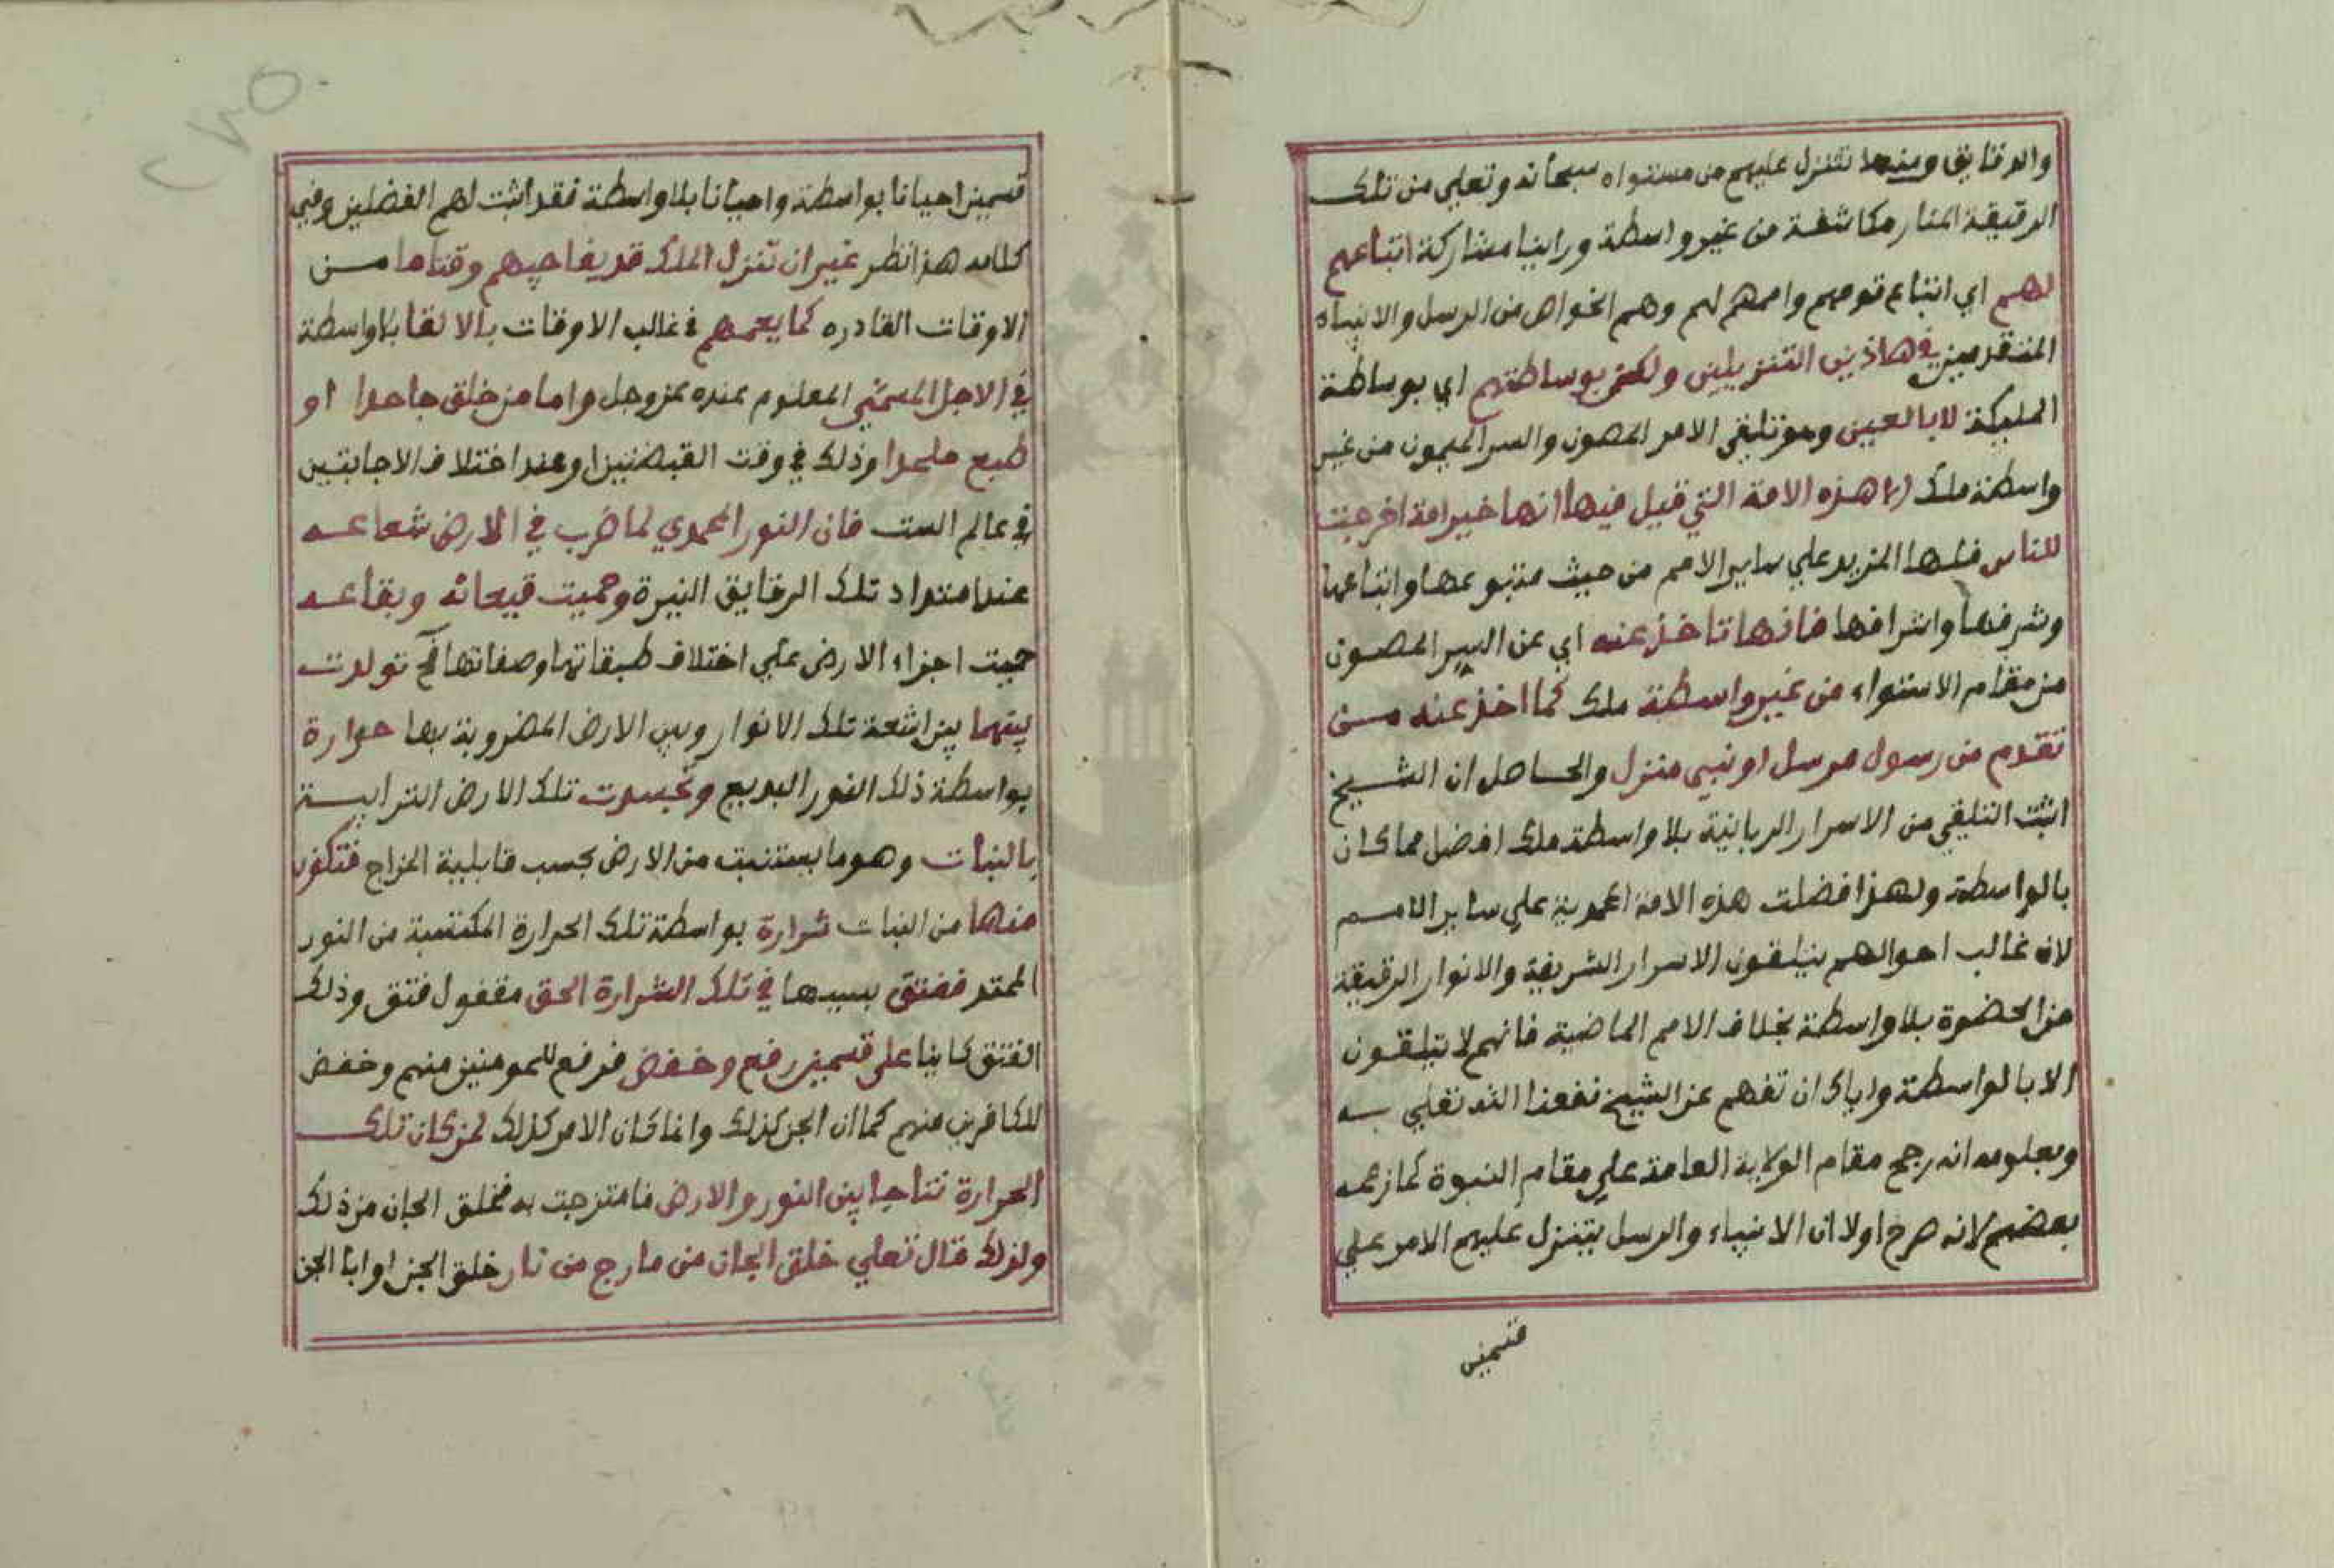 والدقايق ومنها تتنزل عليهم من مستواه سبحانه وتعلي من تلك
الدقيقة المنار مكاشفة من غير واسطة وراينا مشاركة اتباعهم
لهم اي اتباع قومهم واممهم لهم وهم الخواص من الرسل والانبياء
المتقدمين في هاذين التنزيلين ولكن بوساطتهم اي بوساطة
المليكة لا بالعين وهو تلقي الامر المصون والسر من غير
واسطة ملك الا هذه الامة التي قيل فيها انها خير امة اخرجت
للناس فلها المزيد علي ساير الامم من حيث متبوعها واتباعها
وشرفها واشرافها فانها تاخذ عنه اي عن السر المصون
من مقام الاستواء من غير واسطة ملك كما اخذ عنه من
تقدم من رسول مرسل او نبي منزل والحاصل ان الشيخ
اثبت التلقي من الاسرار الربانية بلا واسطة ملك افضل مما كان
بالواسطة ولهذا فضلت هذه الامة المحمدية علي ساير الامم
لان غالب احوالهم يتلقون الاسرار الشريفة والانوار الرقيقة
من الحضرة بلا واسطة بخلاف الامم الماضية فانهم لا يتلقون
الا بالواسطة واياك ان تفهم عن الشيخ نفعنا الله تعلي به
وبعلومه انه رجح مقام الولاية العامة علي مقام النبوة كما زعمه
بعضهم لانه صرح اولا ان الانبياء والرسل يتنزل عليهم الامر علي
قسمين
قسمين احيانا بواسطة واحيانا بلا واسطة فقد اثبت لهم الفضلين وفي
كلامه هذا نظر غير ان تنزل الملك قد يفاجيهم وقتا ما من
الاوقات القادره كما يعمهم في غالب الاوقات بالالقا بلا واسطة
في الاجل المسمي المعلوم عنده عز وجل واما من خلق جاحدا او
طبع ملحدا وذلك في وقت القبضتين او عند اختلاف الاجابتين
في عالم الست فان النور المحمدي لما ضرب في الارض شعاعه
عند امتداد تلك الرقايق النيرة وحميت قيعانه وبقاعه
حميت اجزاء الارض علي اختلاف طبقاتها وصفاتها تولدت
بينهما بين اشعة تلك الانوار وبين الارض المضروبة بها حرارة
بواسطة ذلك النور البديع وتجسدت تلك الارض الترابية
بالنبات وهو ما يستنبت من الارض بحسب قابلية المزاج فتكون
منها من النبات شرارة بواسطة تلك الحرارة المكتسبة من النور
الممتد ففتق بسببها في تلك الشرارة الحق مفعول فتق وذلك
الفتق كاينا علي قسمين رفع وخفض فرفع للمومنين منهم وخفض
للكافرين منهم كما ان الجن كذلك وانما كان الامر كذلك لمن كان تلك
الحرارة نتاجا بين النور والارض فامتزجت به فخلق الجان من ذلك
ولذلك قال تعلي خلق الجان من مارج من نار خلق الجن او ابا الجن